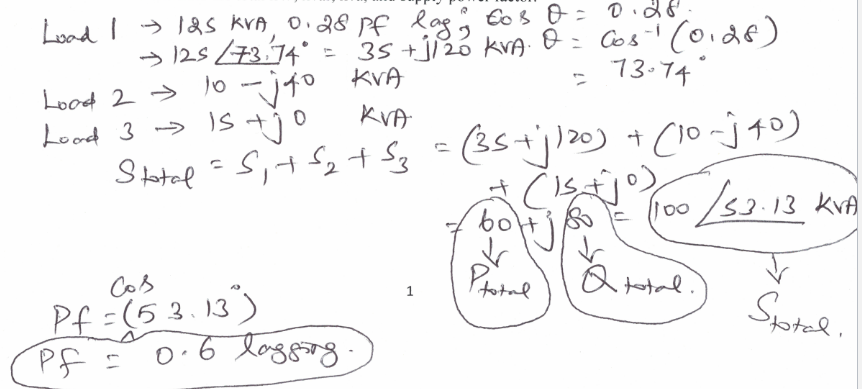 Load 1 → 125 KVA, 0.28 pf lag; Cos θ = 0.28.
→ 125 ∠73.74° = 35 + j120 KVA. θ = Cos⁻¹(0.28)
= 73.74°
Load 2 → 10 - j40 KVA
Load 3 → 15 + j0 KVA
S total = S₁ + S₂ + S₃ = (35 + j120) + (10 - j40)
+ (15 + j0)
= 60 + j 80 = 100 ∠53.13 KVA
↓ P total ↓ Q total. ↓ S total.
1
Pf = Cos(53.13°)
Pf = 0.6 lagging.